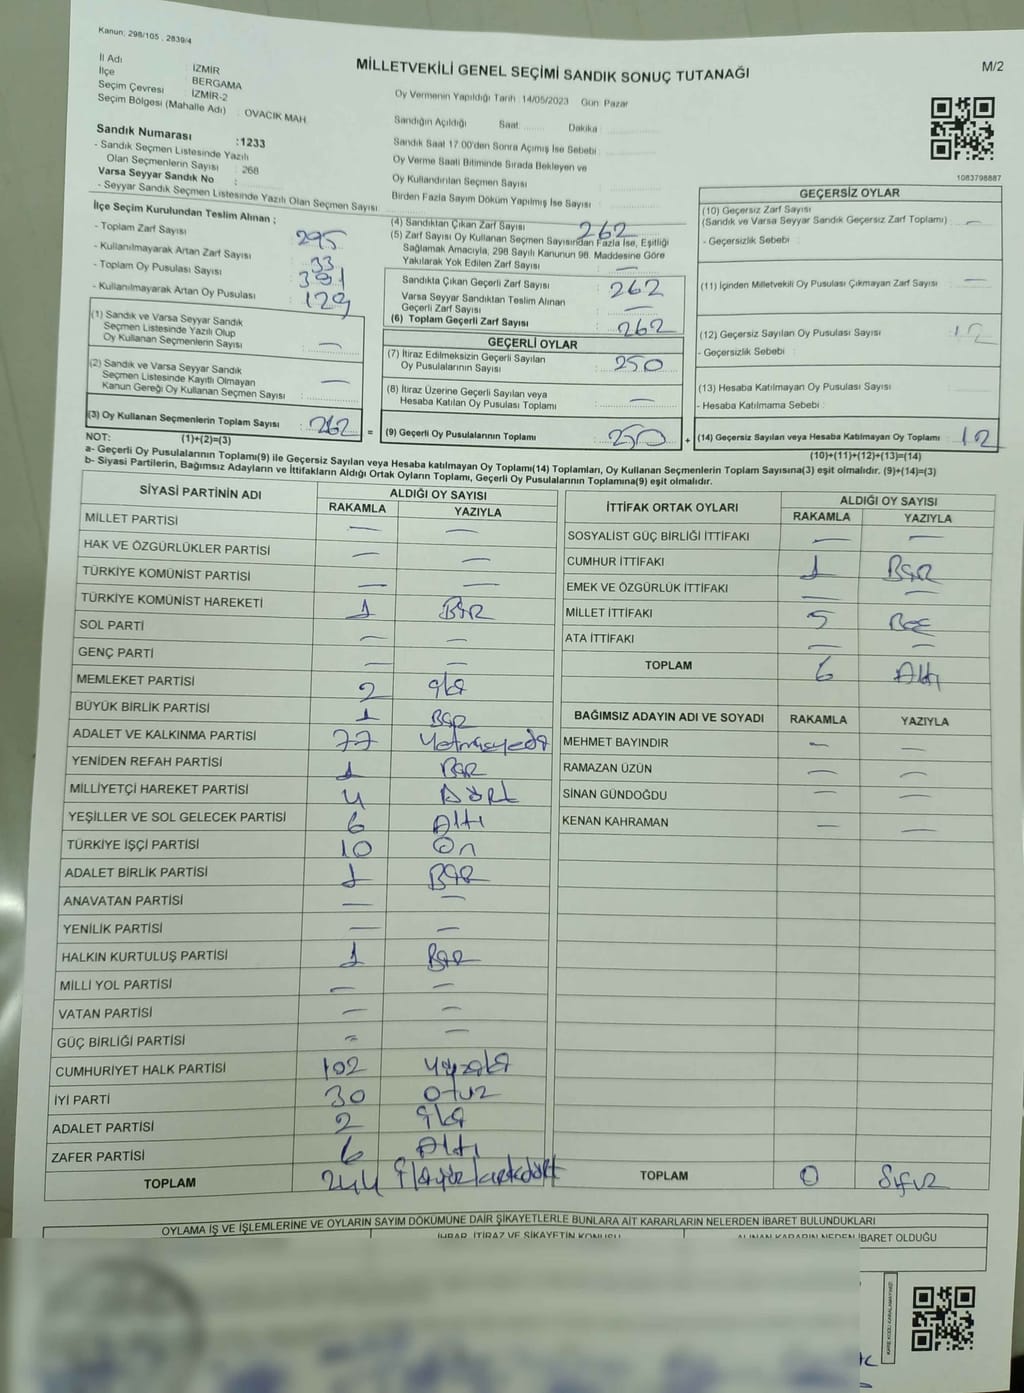 Kanun: 298/105 , 2839/4
M/2
MİLLETVEKİLİ GENEL SEÇİMİ SANDIK SONUÇ TUTANAĞI
İl Adı : İZMİR
İlçe : BERGAMA
Seçim Çevresi : İZMİR-2
Seçim Bölgesi (Mahalle Adı) : OVACIK MAH
Sandık Numarası :1233
- Sandık Seçmen Listesinde Yazılı
Olan Seçmenlerin Sayısı : 268
Varsa Seyyar Sandık No :
- Seyyar Sandık Seçmen Listesinde Yazılı Olan Seçmen Sayısı:
Oy Vermenin Yapıldığı Tarih :14/05/2023 Gün: Pazar
Sandığın Açıldığı Saat: Dakika:
Sandık Saat 17:00'den Sonra Açılmış İse Sebebi:
Oy Verme Saati Bitiminde Sırada Bekleyen ve
Oy Kullandırılan Seçmen Sayısı
Birden Fazla Sayım Döküm Yapılmış İse Sayısı :
1083798887
İlçe Seçim Kurulundan Teslim Alınan ;
- Toplam Zarf Sayısı : 295
- Kullanılmayarak Artan Zarf Sayısı : 33
- Toplam Oy Pusulası Sayısı : 391
- Kullanılmayarak Artan Oy Pusulası : 129
(1) Sandık ve Varsa Seyyar Sandık
Seçmen Listesinde Yazılı Olup
Oy Kullanan Seçmenlerin Sayısı : —
(2) Sandık ve Varsa Seyyar Sandık
Seçmen Listesinde Kayıtlı Olmayan
Kanun Gereği Oy Kullanan Seçmen Sayısı : —
(3) Oy Kullanan Seçmenlerin Toplam Sayısı : 262 =
(1)+(2)=(3)
(4) Sandıktan Çıkan Zarf Sayısı : 262
(5) Zarf Sayısı Oy Kullanan Seçmen Sayısından Fazla İse, Eşitliği
Sağlamak Amacıyla, 298 Sayılı Kanunun 98. Maddesine Göre
Yakılarak Yok Edilen Zarf Sayısı : —
Sandıkta Çıkan Geçerli Zarf Sayısı : 262
Varsa Seyyar Sandıktan Teslim Alınan
Geçerli Zarf Sayısı : —
(6) Toplam Geçerli Zarf Sayısı : 262
GEÇERLİ OYLAR
(7) İtiraz Edilmeksizin Geçerli Sayılan
Oy Pusulalarının Sayısı : 250
(8) İtiraz Üzerine Geçerli Sayılan veya
Hesaba Katılan Oy Pusulası Toplamı : —
(9) Geçerli Oy Pusulalarının Toplamı : 250 +
GEÇERSİZ OYLAR
(10) Geçersiz Zarf Sayısı
(Sandık ve Varsa Seyyar Sandık Geçersiz Zarf Toplamı) : —
- Geçersizlik Sebebi :
(11) İçinden Milletvekili Oy Pusulası Çıkmayan Zarf Sayısı : —
(12) Geçersiz Sayılan Oy Pusulası Sayısı : 12
- Geçersizlik Sebebi :
(13) Hesaba Katılmayan Oy Pusulası Sayısı :
- Hesaba Katılmama Sebebi :
(14) Geçersiz Sayılan veya Hesaba Katılmayan Oy Toplamı : 12
(10)+(11)+(12)+(13)=(14)
NOT:
a- Geçerli Oy Pusulalarının Toplamı(9) ile Geçersiz Sayılan veya Hesaba katılmayan Oy Toplamı(14) Toplamları, Oy Kullanan Seçmenlerin Toplam Sayısına(3) eşit olmalıdır. (9)+(14)=(3)
b- Siyasi Partilerin, Bağımsız Adayların ve İttifakların Aldığı Ortak Oyların Toplamı, Geçerli Oy Pusulalarının Toplamına(9) eşit olmalıdır.
SİYASİ PARTİNİN ADI ALDIĞI OY SAYISI
RAKAMLA YAZIYLA
MİLLET PARTİSİ — —
HAK VE ÖZGÜRLÜKLER PARTİSİ — —
TÜRKİYE KOMÜNİST PARTİSİ — —
TÜRKİYE KOMÜNİST HAREKETİ 1 Bir
SOL PARTİ — —
GENÇ PARTİ — —
MEMLEKET PARTİSİ 2 iki
BÜYÜK BİRLİK PARTİSİ 1 Bir
ADALET VE KALKINMA PARTİSİ 77 Yetmişyedi
YENİDEN REFAH PARTİSİ 1 Bir
MİLLİYETÇİ HAREKET PARTİSİ 4 Dört
YEŞİLLER VE SOL GELECEK PARTİSİ 6 Altı
TÜRKİYE İŞÇİ PARTİSİ 10 On
ADALET BİRLİK PARTİSİ 1 Bir
ANAVATAN PARTİSİ — —
YENİLİK PARTİSİ — —
HALKIN KURTULUŞ PARTİSİ 1 Bir
MİLLİ YOL PARTİSİ — —
VATAN PARTİSİ — —
GÜÇ BİRLİĞİ PARTİSİ — —
CUMHURİYET HALK PARTİSİ 102 Yüziki
İYİ PARTİ 30 Otuz
ADALET PARTİSİ 2 iki
ZAFER PARTİSİ 6 Altı
TOPLAM 244 ikiyüzkırkdört
İTTİFAK ORTAK OYLARI ALDIĞI OY SAYISI
RAKAMLA YAZIYLA
SOSYALİST GÜÇ BİRLİĞİ İTTİFAKI — —
CUMHUR İTTİFAKI 1 Bir
EMEK VE ÖZGÜRLÜK İTTİFAKI — —
MİLLET İTTİFAKI 5 Beş
ATA İTTİFAKI — —
TOPLAM 6 Altı
BAĞIMSIZ ADAYIN ADI VE SOYADI RAKAMLA YAZIYLA
MEHMET BAYINDIR — —
RAMAZAN ÜZÜN — —
SİNAN GÜNDOĞDU — —
KENAN KAHRAMAN — —
TOPLAM 0 Sıfır
OYLAMA İŞ VE İŞLEMLERİNE VE OYLARIN SAYIM DÖKÜMÜNE DAİR ŞİKAYETLERLE BUNLARA AİT KARARLARIN NELERDEN İBARET BULUNDUKLARI
İHBAR, İTİRAZ VE ŞİKAYETİN KONUSU ALINAN KARARIN NEDEN İBARET OLDUĞU